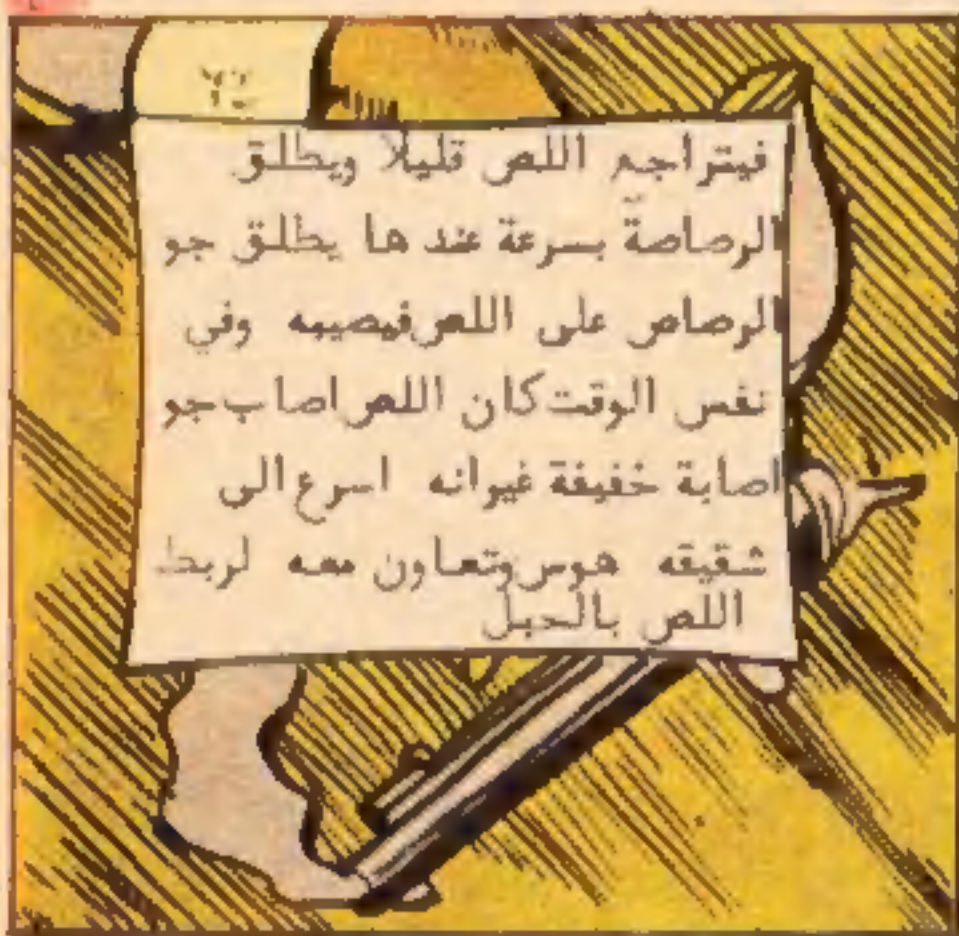 فيتراجع اللص قليلا ويطلق
الرصاصة بسرعة عند ها يطلق جو
الرصاص على اللص فيصيبه وفي
نفس الوقت كان اللص اصاب جو
اصابة خفيفة غيرانه اسرع الى
شقيقه هوس وتعاون معه لربط
اللص بالحبل